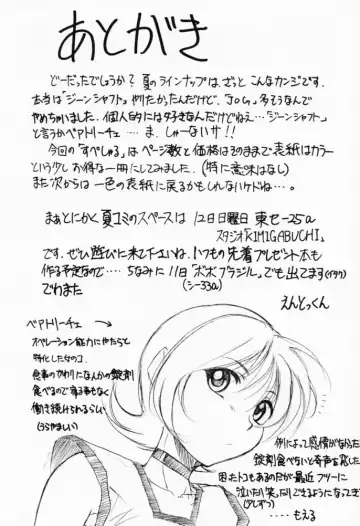 あとがき
どーだったでしょうか? 夏のラインナップは、ざっと こんなカンジです。
本当は「ジーンシャフト」やりたかったんだけど、「JoG」多そうなんで
やめちゃいました。個人的には好きなんだけどねえ…「ジーンシャフト」
と言うかベアトリーチェ……ま、しゃーないサ!!
今回の「すぺしゃる」は ページ数と価格はそのままで・表紙はカラー
という少しお得な一冊にしてみました。(特に意味はなし)
また次からは一色の表紙に戻るかもしれないケドね…。
まあとにかく夏コミのスペースは 12日日曜日 東セ-25a
スタジオ「KIMIGABUCHI」
です。ぜひ遊びに来て下さいね。いつもの先着プレゼント本も
作る予定なので…ちなみに11日「ポポブラジル」でも出てます(イタク)
(シー33a)
でわまた
えんどっくん
ベアトリーチェ
オペレーション能力にやたらと
特化した女のコ。
食事のかわりになんかの錠剤
食べるので寝る事もなく
働き続けられるらしい
(うらやましい)
例によって感情がなかったり
錠剤食べないと奇声を発した
困ったトコもあるのだが最近フツーに
泣いたり笑ったりできるようになってき
(少しずつ)
……もえる